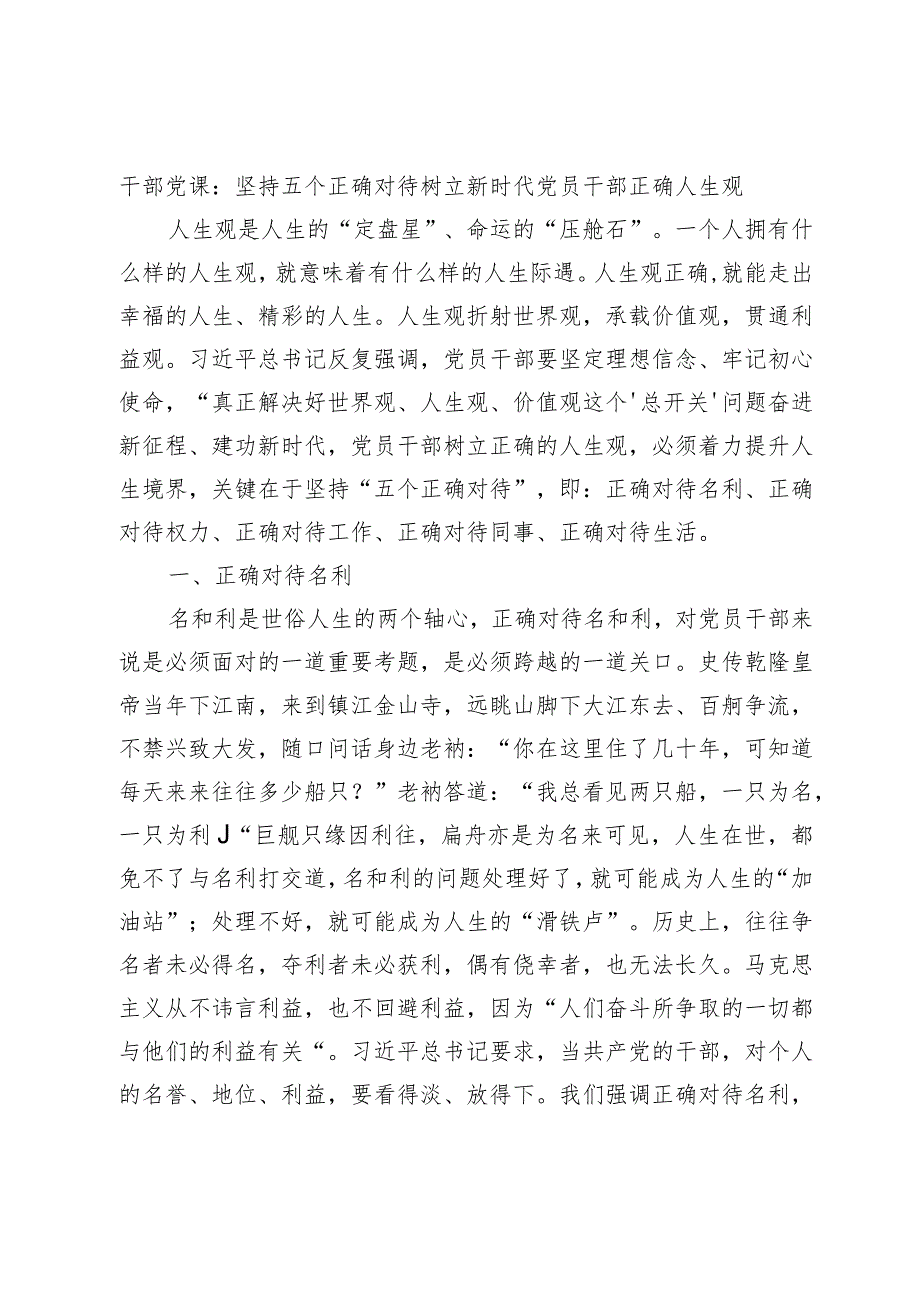 干部党课：坚持五个正确对待树立新时代党员干部正确人生观
人生观是人生的“定盘星”、命运的“压舱石”。一个人拥有什
么样的人生观，就意味着有什么样的人生际遇。人生观正确,就能走出
幸福的人生、精彩的人生。人生观折射世界观，承载价值观，贯通利
益观。习近平总书记反复强调，党员干部要坚定理想信念、牢记初心
使命，“真正解决好世界观、人生观、价值观这个'总开关'问题奋进
新征程、建功新时代，党员干部树立正确的人生观，必须着力提升人
生境界，关键在于坚持“五个正确对待”，即：正确对待名利、正确
对待权力、正确对待工作、正确对待同事、正确对待生活。
一、正确对待名利
名和利是世俗人生的两个轴心，正确对待名和利，对党员干部来
说是必须面对的一道重要考题，是必须跨越的一道关口。史传乾隆皇
帝当年下江南，来到镇江金山寺，远眺山脚下大江东去、百舸争流，
不禁兴致大发，随口问话身边老衲：“你在这里住了几十年，可知道
每天来来往往多少船只？”老衲答道：“我总看见两只船，一只为名，
一只为利J“巨舰只缘因利往，扁舟亦是为名来可见，人生在世，都
免不了与名利打交道，名和利的问题处理好了，就可能成为人生的“加
油站”；处理不好，就可能成为人生的“滑铁卢”。历史上，往往争
名者未必得名，夺利者未必获利，偶有侥幸者，也无法长久。马克思
主义从不讳言利益，也不回避利益，因为“人们奋斗所争取的一切都
与他们的利益有关“。习近平总书记要求，当共产党的干部，对个人
的名誉、地位、利益，要看得淡、放得下。我们强调正确对待名利，